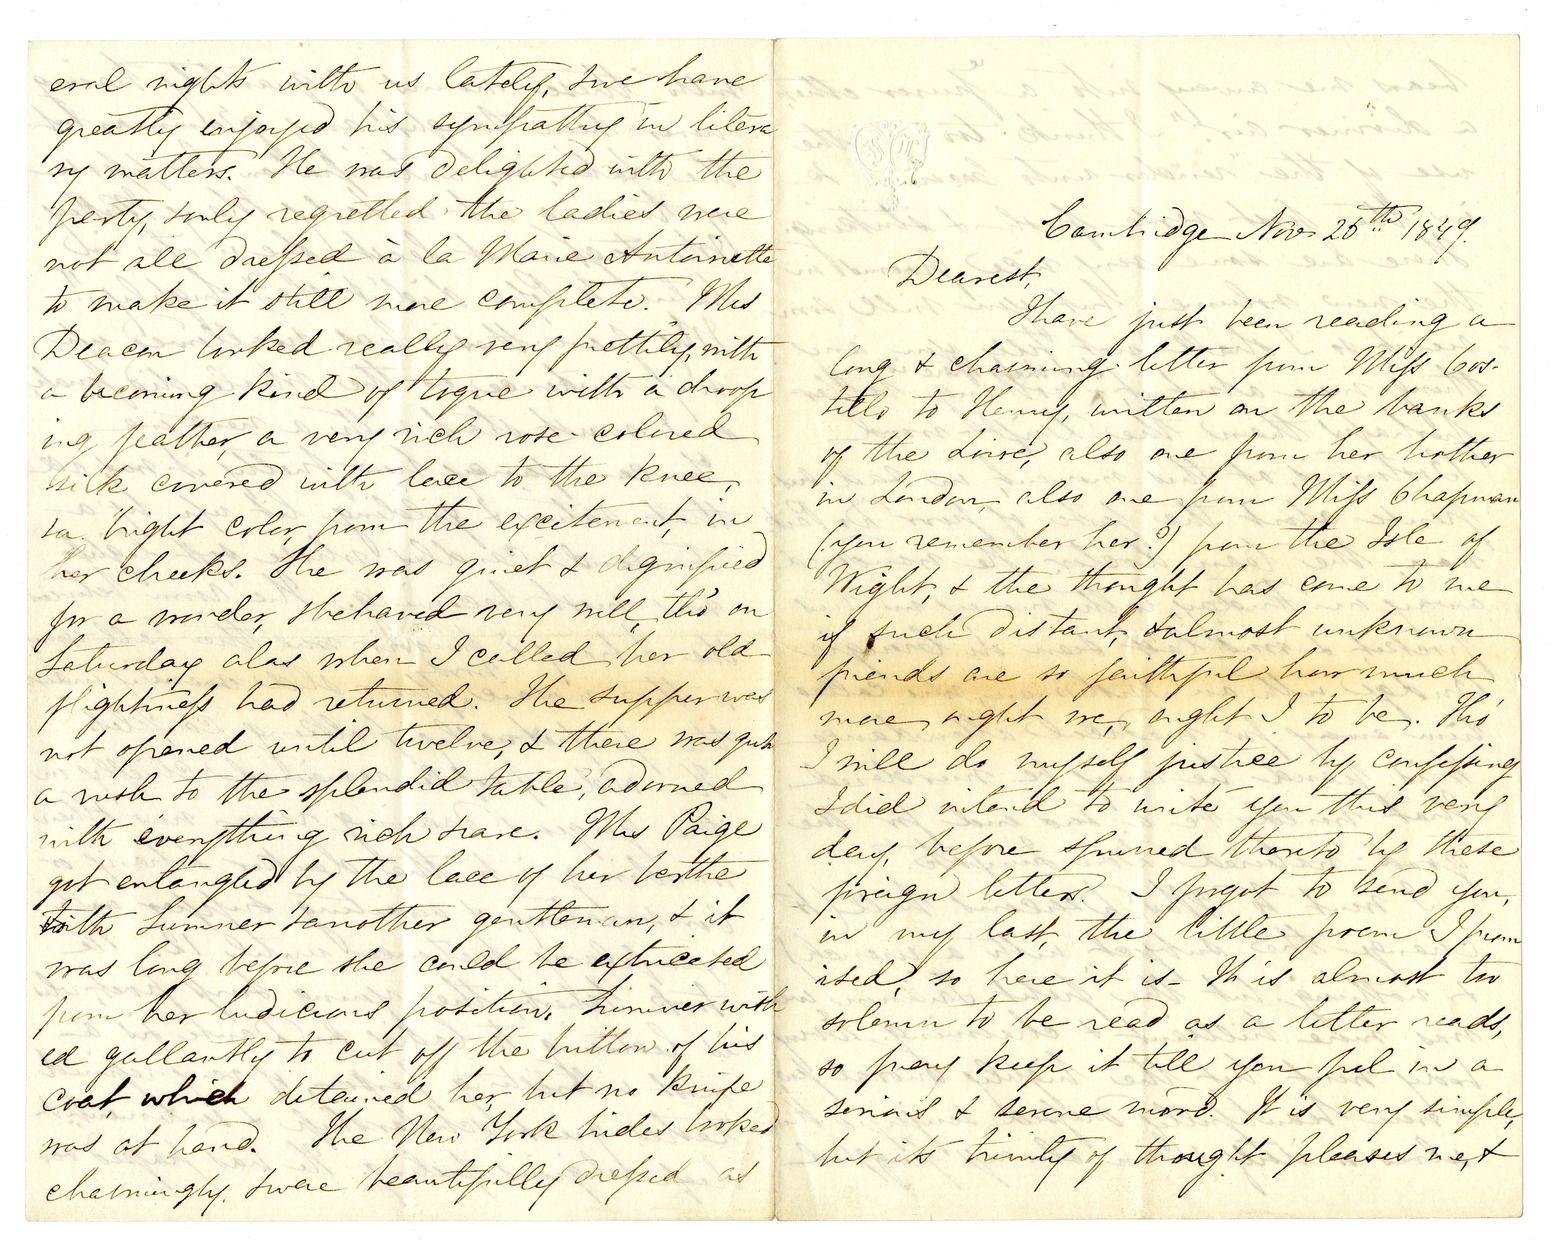 eral nights with us lately, & we have
greatly enjoyed his sympathy in litera
ry matters. He was delighted with the
party, & only regretted the ladies were
not all dressed à la Marie Antoinette
to make it still more complete. Mrs
Deacon looked really very prettily, with
a becoming kind of toque with a droop
ing feather, a very rich rose-colored
silk covered with lace to the knee,
& a bright color, from the excitement, in
her cheeks. She was quiet & dignified
for a wonder, & behaved very well, tho' on
Saturday alas when I called her old
flightiness had returned. The supper was
not opened until twelve, & there was quite
a rush to the splendid table, adorned
with everything rich & rare. Mrs Paige
got entangled by the lace of her berthe
with Sumner & another gentleman, & it
was long before she could be extricated
from her ludicrous position. Sumner wish
ed gallantly to cut off the button of his
coat, which detained her, but no knife
was at hand. The New York brides looked
charmingly, & were beautifully dressed as
Cambridge Nov 25th 1849.
Dearest,
I have just been reading a
long & charming letter from Miss Cos-
tello to Henry, written on the banks
of the Loire, also one from her brother
in London, also one from Miss Chapman
(you remember her?) from the Isle of
Wight, & the thought has come to me
if such distant, & almost unknown
friends are so faithful how much
more ought we, ought I to be. Tho'
I will do myself justice by confessing
I did intend to write you this very
day, before spurred thereto by these
foreign letters. I forgot to send you,
in my last, the little poem I prom
ised, so here it is – It is almost too
solemn to be read as a letter reads,
so pray keep it till you feel in a
serious & serene mood. It is very simple,
but its trinity of thought pleases me, &